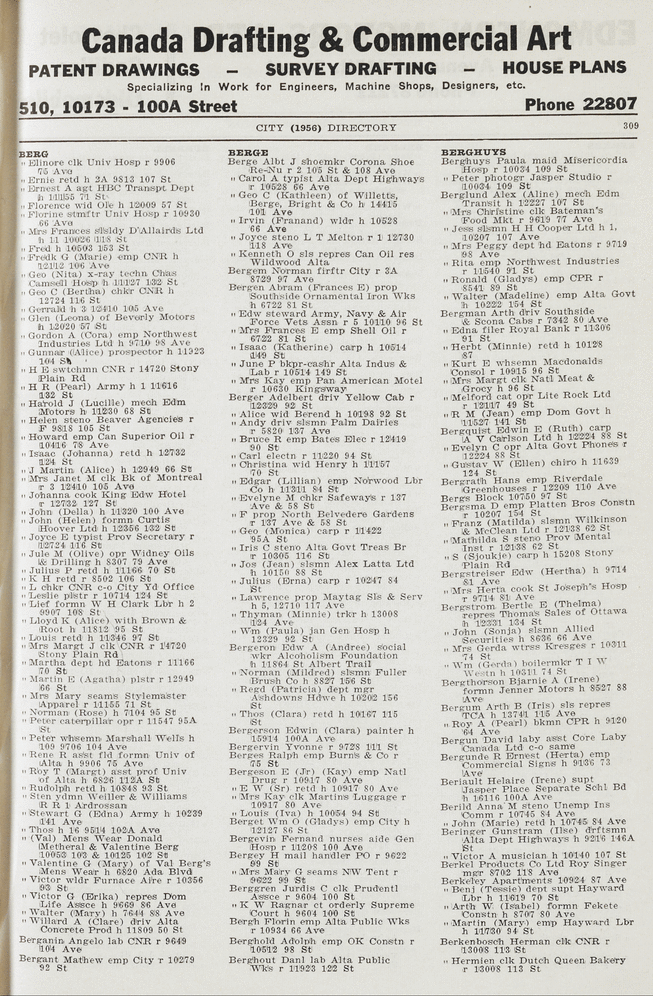 Canada Drafting & Commercial Art
PATENT DRAWINGS — SURVEY DRAFTING — HOUSE PLANS
Specializing In Work for Engineers, Machine Shops, Designers, etc.
510, 10173 - 100A Street Phone 22807
CITY (1956) DIRECTORY 309
BERG
" Elinore clk Univ Hosp r 9906
75 Ave
" Ernie retd h 2A 9813 107 St
" Ernest A agt HBC Transpt Dept
h 11155 71 St
" Florence wid Ole h 12009 57 St
" Florine stmftr Univ Hosp r 10930
66 Ave
" Mrs Frances slsldy D'Allairds Ltd
h 11 10026 118 St
" Fred h 10503 153 St
" Fredk G (Marie) emp CNR h
12112 106 Ave
" Geo (Nita) x-ray techn Chas
Camsell Hosp h 11127 132 St
" Geo C (Bertha) chkr CNR h
12724 116 St
" Gerrald h 3 12410 105 Ave
" Glen (Leona) of Beverly Motors
h 12020 57 St
" Gordon A (Cora) emp Northwest
Industries Ltd h 9710 98 Ave
" Gunnar (Alice) prospector h 11923
104 St
" H E swtchmn CNR r 14720 Stony
Plain Rd
" H R (Pearl) Army h 1 11616
132 St
" Harold J (Lucille) mech Edm
Motors h 11230 68 St
" Helen steno Beaver Agencies r
F 9818 105 St
" Howard emp Can Superior Oil r
10416 78 Ave
" Isaac (Johanna) retd h 12732
124 St
" J Martin (Alice) h 12949 66 St
" Mrs Janet M clk Bk of Montreal
r 3 12410 105 Ave
" Johanna cook King Edw Hotel
r 12732 127 St
" John (Della) h 11320 100 Ave
" John (Helen) formn Curtis
Hoover Ltd h 12356 132 St
" Joyce E typist Prov Secretary r
12724 116 St
" Jule M (Olive) opr Widney Oils
& Drilling h 8307 79 Ave
" Julius P retd h 11166 70 St
" K H retd r 8502 106 St
" L chkr CNR c-o City Yd Office
" Leslie plstr r 10714 124 St
" Lief formn W H Clark Lbr h 2
9907 108 St
" Lloyd K (Alice) with Brown &
Root h 11812 95 St
" Louis retd h 11346 97 St
" Mrs Margt J clk CNR r 14720
Stony Plain Rd
" Martha dept hd Eatons r 11166
70 St
" Martin E (Agatha) plstr r 12949
66 St
" Mrs Mary seams Stylemaster
Apparel r 11155 71 St
" Norman (Rose) h 7104 95 St
" Peter caterpillar opr r 11547 95A
St
" Peter whsemn Marshall Wells h
109 9706 104 Ave
" Rene R asst fld formn Univ of
Alta h 9906 75 Ave
" Roy T (Margt) asst prof Univ
of Alta h 6826 112A St
" Rudolph retd h 10848 93 St
" Sten ydmn Weiller & Williams
R R 1 Ardrossan
" Stewart G (Edna) Army h 10239
141 Ave
" Thos h 16 9514 102A Ave
" (Val) Mens Wear Donald
Metheral & Valentine Berg
10053 103 & 10125 102 St
" Valentine G (Mary) of Val Berg's
Mens Wear h 6820 Ada Blvd
" Victor wldr Furnace Aire r 10356
93 St
" Victor G (Erika) repres Dom
Life Assce h 9669 86 Ave
" Walter (Mary) h 7644 88 Ave
" Willard A (Clare) driv Alta
Concrete Prod h 11809 50 St
Berganin Angelo lab CNR r 9649
104 Ave
Bergant Mathew emp City r 10279
92 St
BERGE
Berge Albt J shoemkr Corona Shoe
Re-Nu r 2 105 St & 108 Ave
" Carol A typist Alta Dept Highways
r 10528 66 Ave
" Geo C (Kathleen) of Willetts,
Berge, Bright & Co h 14415
101 Ave
" Irvin (Franand) wldr h 10528
66 Ave
" Joyce steno L T Melton r 1 12730
118 Ave
" Kenneth O sls repres Can Oil res
Wildwood Alta
Bergem Norman firftr City r 3A
8729 97 Ave
Bergen Abram (Frances E) prop
Southside Ornamental Iron Wks
h 6722 81 St
" Edw steward Army, Navy & Air
Force Vets Assn r 5 10110 96 St
" Mrs Frances E emp Shell Oil r
6722 81 St
" Isaac (Katherine) carp h 10514
149 St
" June P bkpr-cashr Alta Indus &
Lab r 10514 149 St
" Mrs Kay emp Pan American Motel
r 10630 Kingsway
Berger Adelbert driv Yellow Cab r
12329 92 St
" Alice wid Berend h 10198 92 St
" Andy driv slsmn Palm Dairies
r 5820 137 Ave
" Bruce R emp Bates Elec r 12419
90 St
" Carl electn r 11220 94 St
" Christina wid Henry h 11157
70 St
" Edgar (Lillian) emp Norwood Lbr
Co h 11311 84 St
" Evelyne M chkr Safeways r 137
Ave & 58 St
" F prop North Belvedere Gardens
r 137 Ave & 58 St
" Geo (Monica) carp r 11422
95A St
" Iris C steno Alta Govt Treas Br
r 10305 116 St
" Jos (Jean) slsmn Alex Latta Ltd
h 10150 88 St
" Julius (Erna) carp r 10247 84
St
" Lawrence prop Maytag Sls & Serv
h 5, 12710 117 Ave
" Thyman (Minnie) trkr h 13008
124 Ave
" Wm (Paula) jan Gen Hosp h
12329 92 St
Bergeron Edw A (Andree) social
wkr Alcoholism Foundation
h 11864 St Albert Trail
" Norman (Mildred) slsmn Fuller
Brush Co h 8827 156 St
" Regd (Patricia) dept mgr
Ashdowns Hdwe h 10202 156
St
" Thos (Clara) retd h 10167 115
St
Bergerson Edwin (Clara) painter h
15914 100A Ave
Bergervin Yvonne r 9728 111 St
Berges Ralph emp Burns & Co r
75 St
Bergeson E (Jr) (Kay) emp Natl
Drug r 10917 80 Ave
" E W (Sr) retd h 10917 80 Ave
" Mrs Kay clk Martins Luggage r
10917 80 Ave
" Louis (Iva) h 10054 94 St
Berget Wm O (Gladys) emp City h
12127 86 St
Bergevin Fernand nurses aide Gen
Hosp r 11208 100 Ave
Bergey H mail handler PO r 9622
99 St
" Mrs Mary G seams NW Tent r
9622 99 St
Berggren Jurdis C clk Prudentl
Assce r 9604 100 St
" K W Ragnar ct orderly Supreme
Court h 9604 100 St
Bergh Florin emp Alta Public Wks
r 10934 66 Ave
Berghold Adolph emp OK Constn r
10512 98 St
Berghout Danl lab Alta Public
Wks r 11923 122 St
BERGHUYS
Berghuys Paula maid Misericordia
Hosp r 10034 109 St
" Peter photogr Jasper Studio r
10034 109 St
Berglund Alex (Aline) mech Edm
Transit h 12227 107 St
" Mrs Christine clk Bateman's
Food Mkt r 9619 77 Ave
" Jess slsmn H H Cooper Ltd h 1,
10207 107 Ave
" Mrs Peggy dept hd Eatons r 9719
98 Ave
" Rita emp Northwest Industries
r 11540 91 St
" Ronald (Gladys) emp CPR r
8541 89 St
" Walter (Madeline) emp Alta Govt
h 10222 154 St
Bergman Arth driv Southside
& Scona Cabs r 7342 80 Ave
" Edna filer Royal Bank r 11306
91 St
" Herbt (Minnie) retd h 10128
87
" Kurt E whsemn Macdonalds
Consol r 10915 96 St
" Mrs Margt clk Natl Meat &
Grocy h 96 St
" Melford cat opr Lite Rock Ltd
r 12117 49 St
" R M (Jean) emp Dom Govt h
11527 141 St
Bergquist Edwin E (Ruth) carp
A V Carlson Ltd h 12224 88 St
" Evelyn C opr Alta Govt Phones r
12224 88 St
" Gustav W (Ellen) chiro h 11639
124 St
Bergrath Hans emp Riverdale
Greenhouses r 12209 110 Ave
Bergs Block 10750 97 St
Bergsma D emp Platten Bros Constn
r 10207 154 St
" Franz (Matilda) slsmn Wilkinson
& McClean Ltd r 12138 62 St
" Mathilda S steno Prov Mental
Inst r 12138 62 St
" S (Sjoukje) carp h 15208 Stony
Plain Rd
Bergstreiser Edw (Hertha) h 9714
81 Ave
" Mrs Herta cook St Joseph's Hosp
r 9714 81 Ave
Bergstrom Bertle E (Thelma)
repres Thomas Sales of Ottawa
h 12331 134 St
" John (Sonja) slsmn Allied
Securities h 8636 66 Ave
" Mrs Gerda wtrss Kresges r 10311
74 St
" Wm (Gerda) boilermkr T I W
Westn h 10311 74 St
Bergthorson Bjarnie A (Irene)
formn Jenner Motors h 8527 88
Ave
Bergum Arth B (Iris) sls repres
TCA h 13741 115 Ave
" Roy A (Pearl) bkmn CPR h 9120
64 Ave
Bergun David laby asst Core Laby
Canada Ltd c-o same
Bergunde R Ernest (Herta) emp
Commercial Signs h 9136 73
Ave
Beriault Helaire (Irene) supt
Jasper Place Separate Schl Bd
h 16116 100A Ave
Berild Anna M steno Unemp Ins
Comm r 10745 84 Ave
" John (Marie) retd h 10745 84 Ave
Beringer Gunstram (Ilse) drftsmn
Alta Dept Highways h 9216 146A
St
" Victor A musician h 10140 107 St
Berkel Products Co Ltd Roy Singer
mgr 8702 118 Ave
Berkeley Apartments 10924 87 Ave
" Benj (Tessie) dept supt Hayward
Lbr h 11619 70 St
" Arth W (Isabel) formn Fekete
Constn h 8707 80 Ave
" Martin (Mary) emp Hayward Lbr
h 11730 94 St
Berkenbosch Herman clk CNR r
13008 113 St
" Hermien clk Dutch Queen Bakery
r 13008 113 St